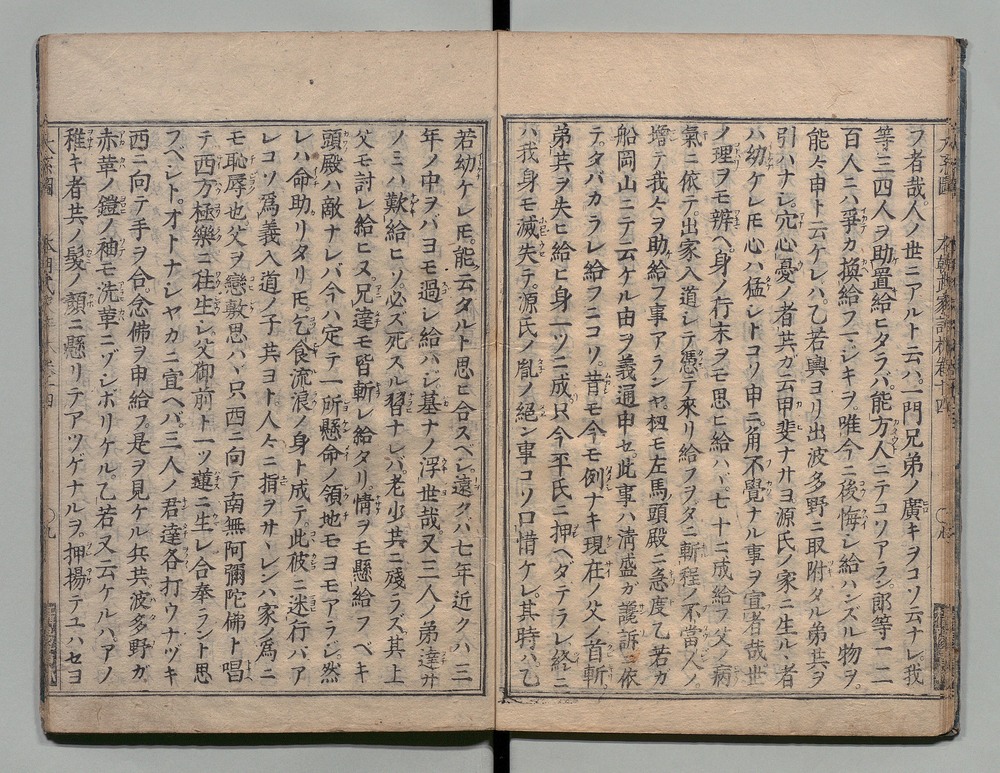 フ者哉。人ノ世ニアルト云ハ。一門兄弟ノ廣キヲコソ云ナレ。我
等三四人ヲ助置給ヒタラバ。能方人ニテコソアラン。郎等一二
百人ニハ爭カ換給フマジキヲ。唯今ニ後悔シ給ハンズル物ヲ。
能々申ト云ケレハ。乙若輿ヨリ出波多野ニ取附タル弟共ヲ
引ハナシ。穴心憂ノ者共カ云甲斐ナサヨ源氏ノ家ニ生ルヽ者
ハ幼ケレモ心ハ猛シトコソ申ニ。角不覺ナル事ヲ宣者哉世
ノ理ヲモ辨ヘ。身ノ行末ヲモ思ヒ給ハヽ。七十ニ成給フ父ノ病
氣ニ依テ。出家入道シテ憑テ來リ給フヲタニ斬程ノ不當人ノ。
增テ我々ヲ助給フ事アランヤ。扨モ左馬頭殿ニ急度乙若カ
船岡山ニテ云ケル由ヲ義通申セ。此事ハ淸盛カ讒訴ニ依
テ。タバカラレ給フニコソ。昔モ今モ例ナキ現在ノ父ノ首斬。
弟共ヲ失ヒ給ヒ身一ツニ成。只今平氏ニ押ヘダテラレ。終ニ
ハ我身モ滅失テ。源氏ノ胤ノ絕ン事コソ口惜ケレ。其時ハ乙
若幼ケレモ。能云タルト思ヒ合スヘシ。遠クバ七年近クハ三
年ノ中ヲバヨモ過シ給ハシ。基ナノ浮世哉。又三人ノ弟達サ
ノミハ歎給ヒソ。必ズ死スル習ナレバ。老少共ニ殘ラズ其上
父モ討レ給ヒヌ。兄達モ皆斬レ給タリ。情ヲモ懸給フベキ
頭殿ハ敵ナレバ今ハ定テ一所懸命ノ領地モヨモアラジ。然
レハ命助リタリモ。乞食流浪ノ身ト成テ。此彼ニ迷行バア
レコソ爲義入道ノ子共ヨト。人々ニ指ヲサヽレンハ家ノ爲ニ
モ恥辱也父ヲ戀敷思ハヽ只西ニ向テ南無阿彌陀佛ト唱
テ西方極樂ニ往生シ。父御前ト一ツ蓮ニ生レ合奉ラント思
フヘシト。オトナシヤカニ宣ヘバ。三人ノ君達各打ウナヅキ
西ニ向テ手ヲ合。念佛ヲ申給フ。是ヲ見ケル兵共。波多野ガ
赤革ノ鎧ノ袖モ洗革ニゾシボリケル。乙若又云ケルハアノ
稚キ者共ノ髮ノ顏ニ懸リテアツゲナルヲ。押揚テユハセヨ